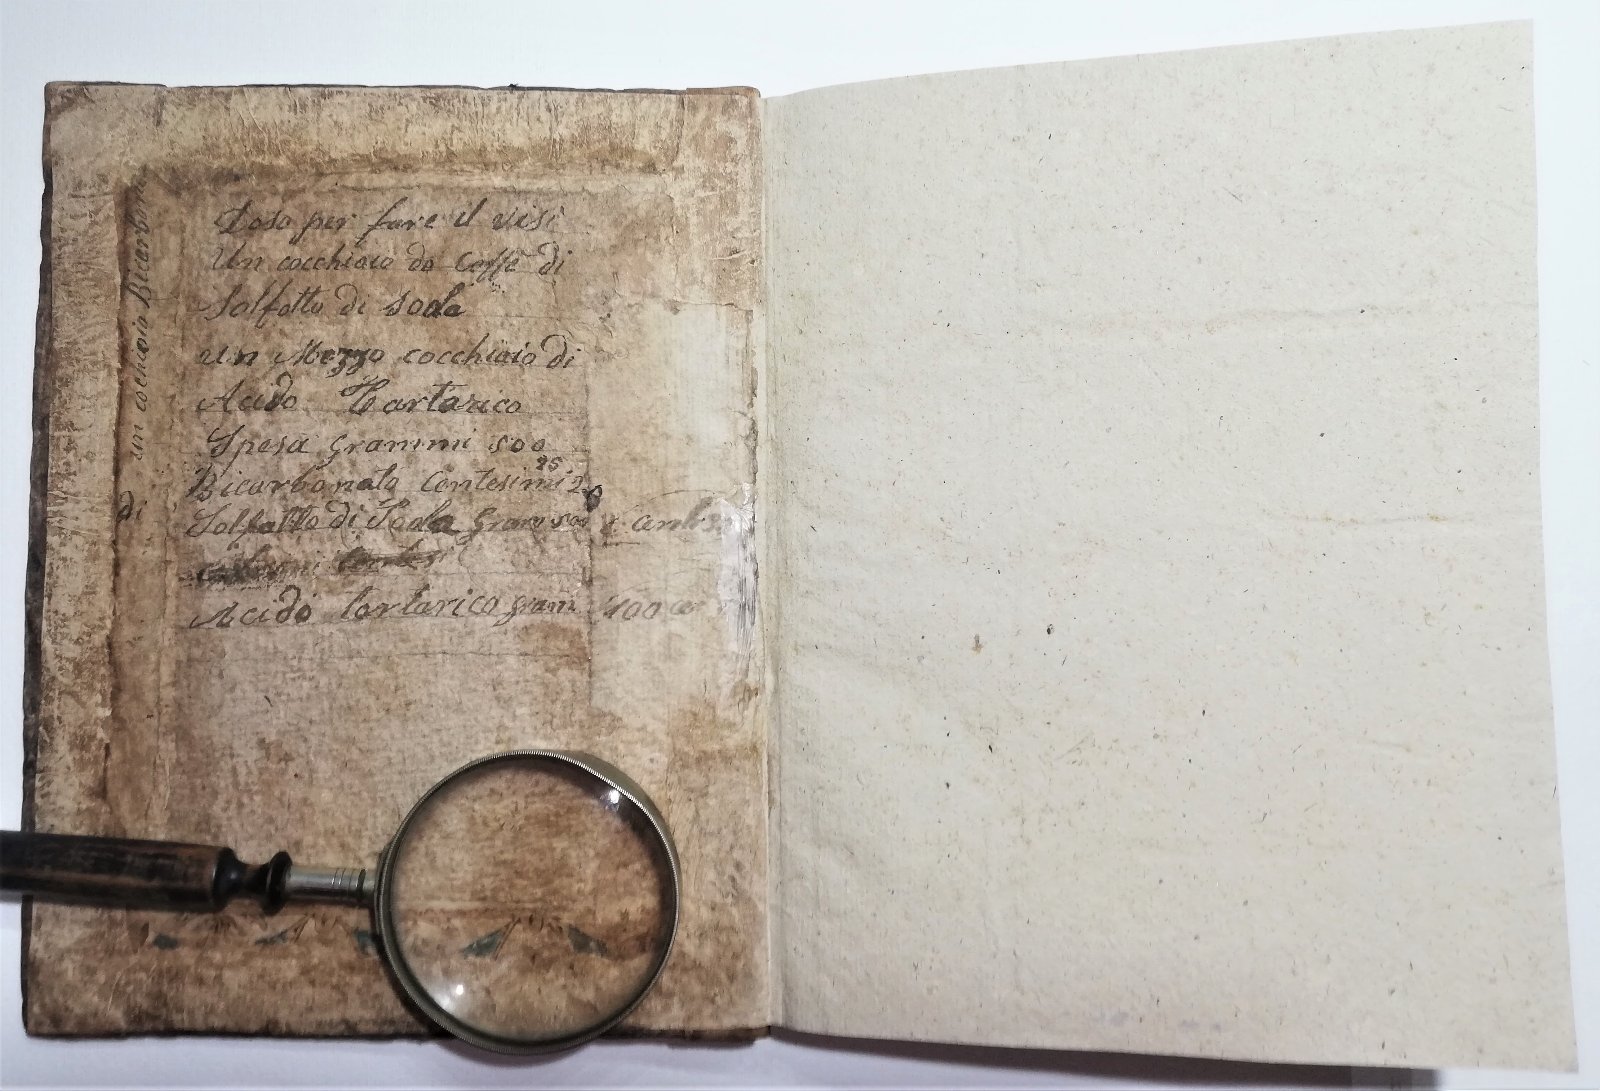 Doso per fare il visi
Un cocchiaio da Caffè di
Solfatto di Soda
un Mezzo cocchiaio di
Acido Tartarico
Spesa grammi 500
25
Bicarbonato Centesimi 20
Solfatto di Soda gram 500
Acido tartarico gram 100
un cochiaio Bicarbon
di